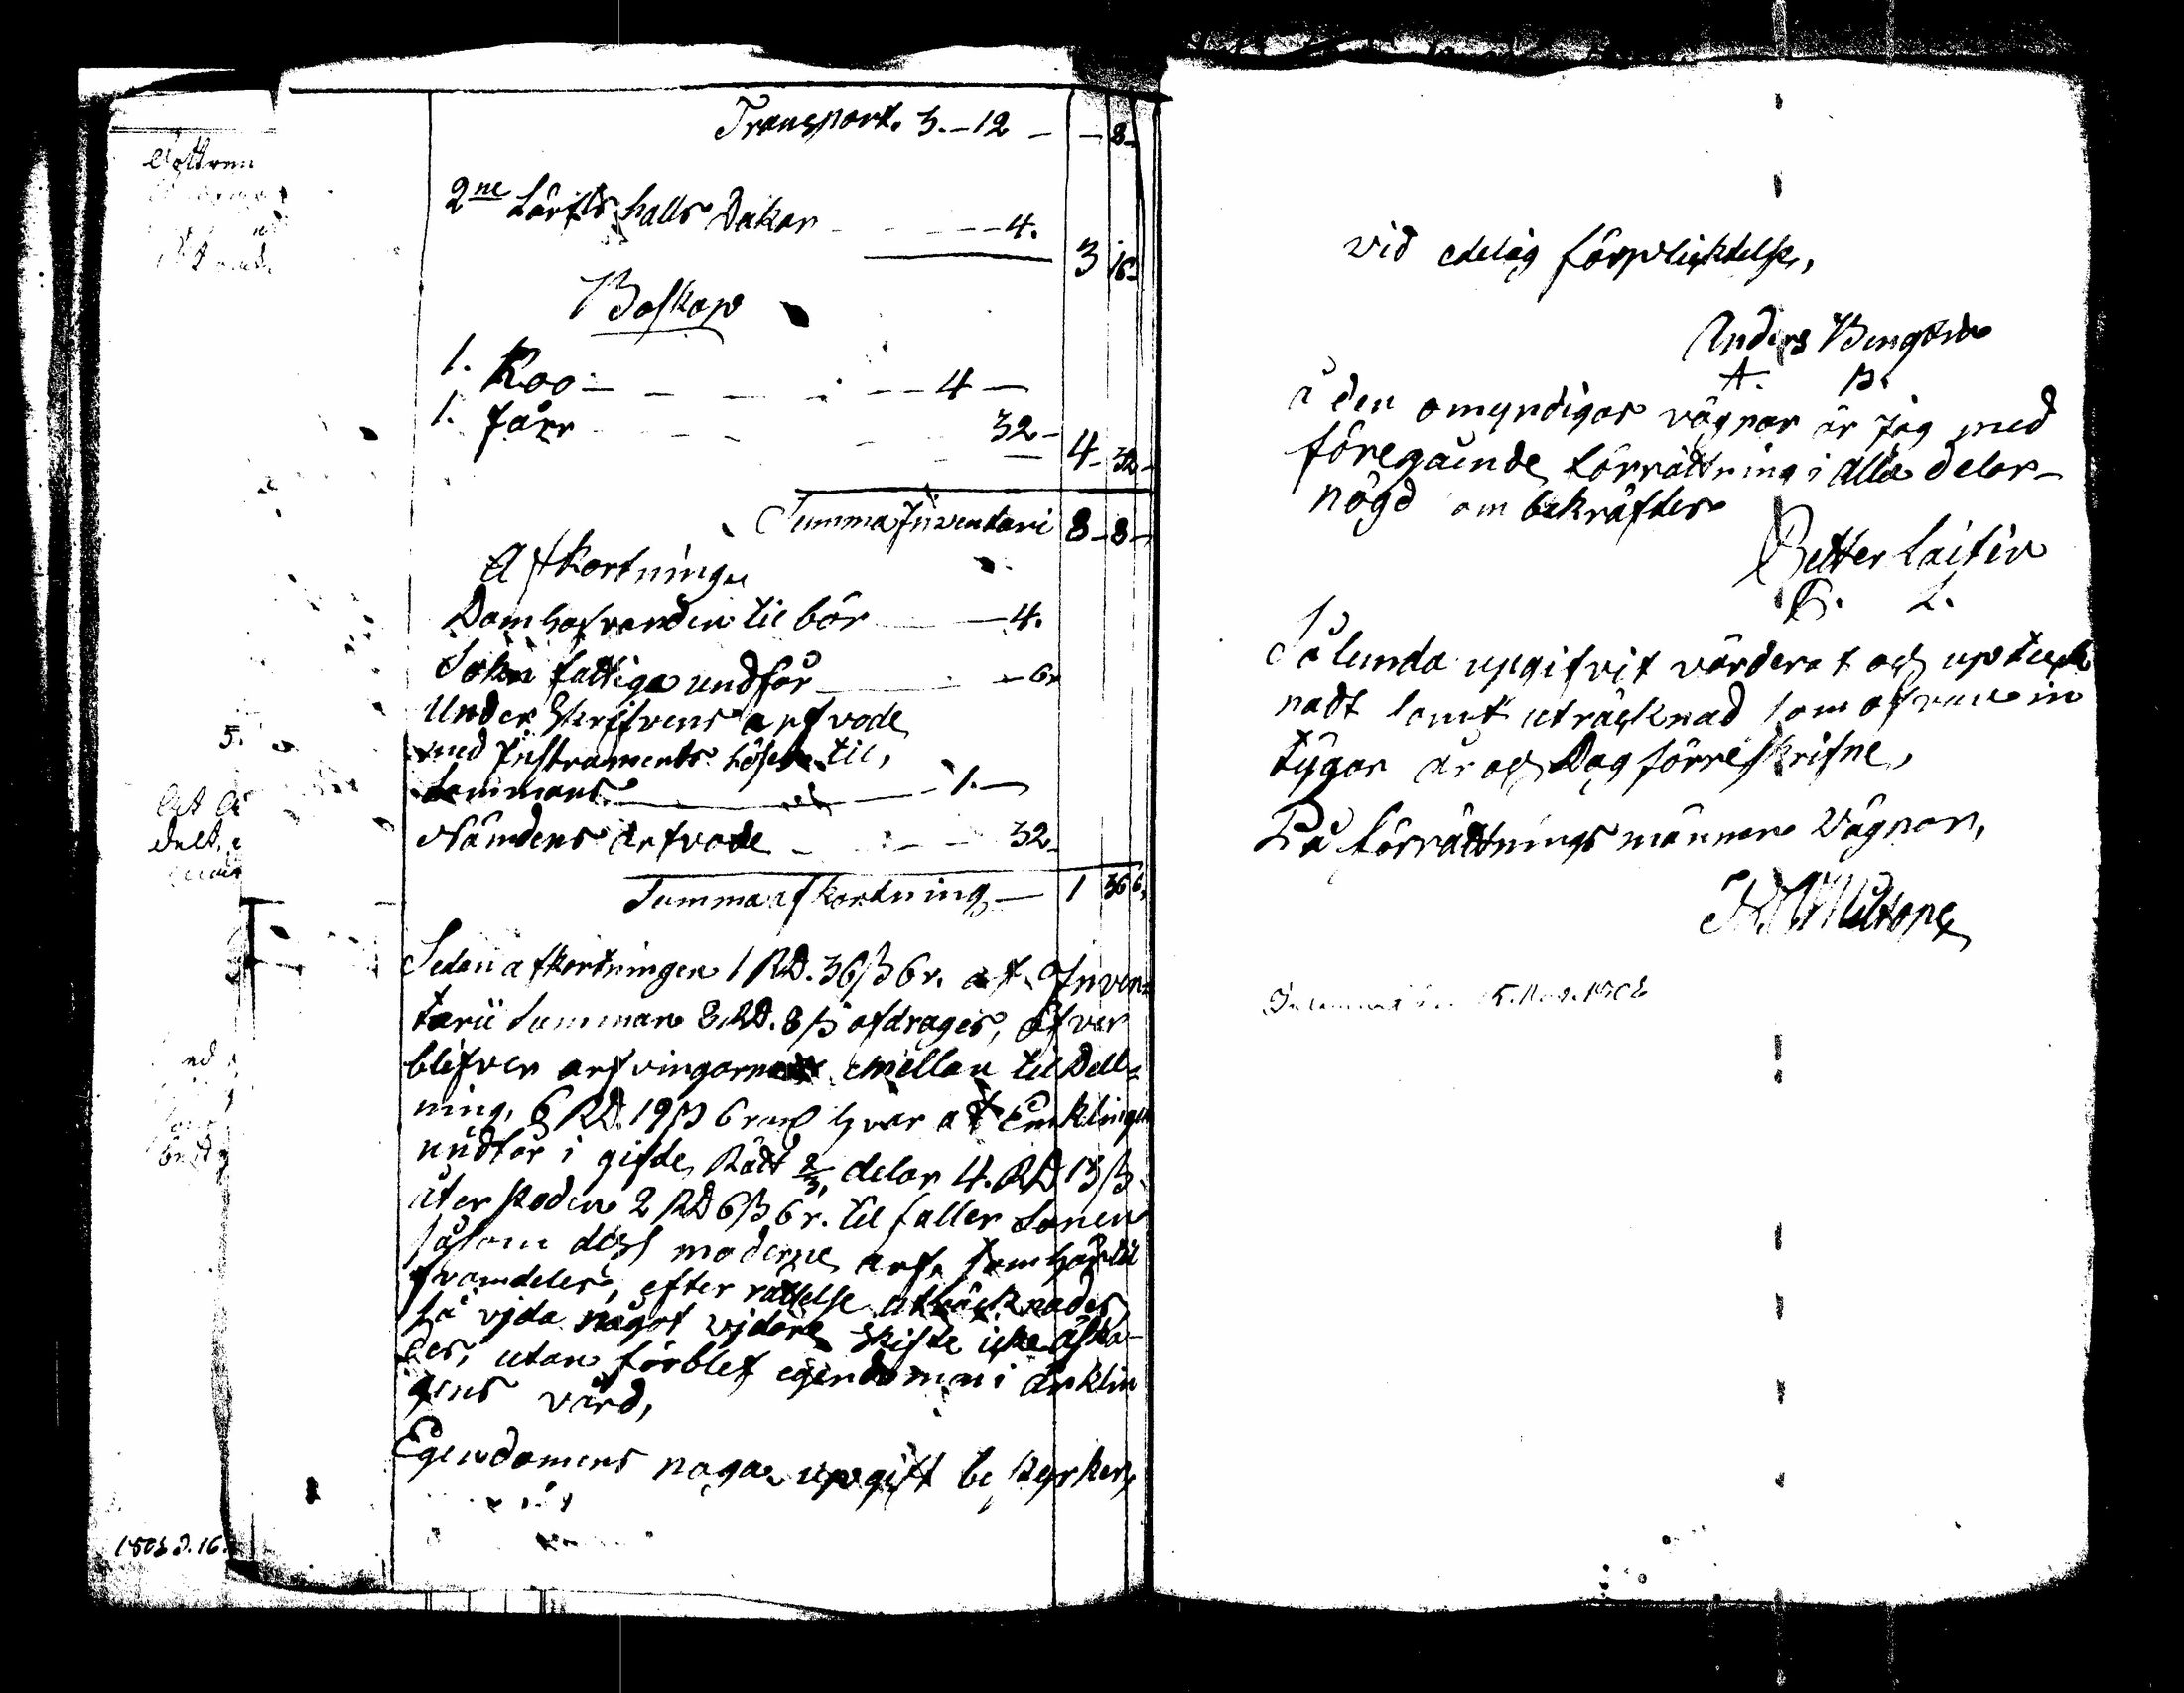 Transport. 3. – 12 – – 8 –
2ne Lärfts halls Dukar – – – – 4.
3 16
Boskap
1. Koo – – – – – – 4 –
1. fårr – – – – 32 –
4 – 32 –
Summa Inventari 8 – 8 –
Afkortning
Domhafvanden til bör – – 4.
Sokn fattiga undfår – – 6r
Under Skrifvens arfvode
med Instraments lösen til,
sammans – – 1. –
Nämdens arfvode – – – 32 –
Summa afkortning – 1 36 6.
Sedan afkortningen 1 RD. 36ß 6r. af Inven=
tarii Summan 8 RD. 8ß afdrages, öfver
blifver arfvingarne emellan til Dell=
ning, 6 RD. 19ß 6r. hvar af Enklingen
undfår i gifde Rätt 2/3 delar 4. RD 13ß
åter stoden 2 RD 6ß 6r. til faller Sonen
såsom dess moderne arf, som här til
framdeles, efter rättelse uträcknades
så vjda något vjdare skifte icke åska-
des, utan förblef egendomen i änklin
gens vård,
Egendomens noga upgift bestyrker,
vid edelig förplicktelse,
Anders Bengtson
A. B.
å den omyndigas vägnar är jag med
föregående förrättning i alla delar
nögd som bekräftes
Petter Laitin
P. L.
Sålunda upgifvit värderat och upteck
nadt samt uträcknad som ofvan in
tygar år och Dag förreskrifne,
På förrättnings männens Vägnar,
5.
1803 D. 16.